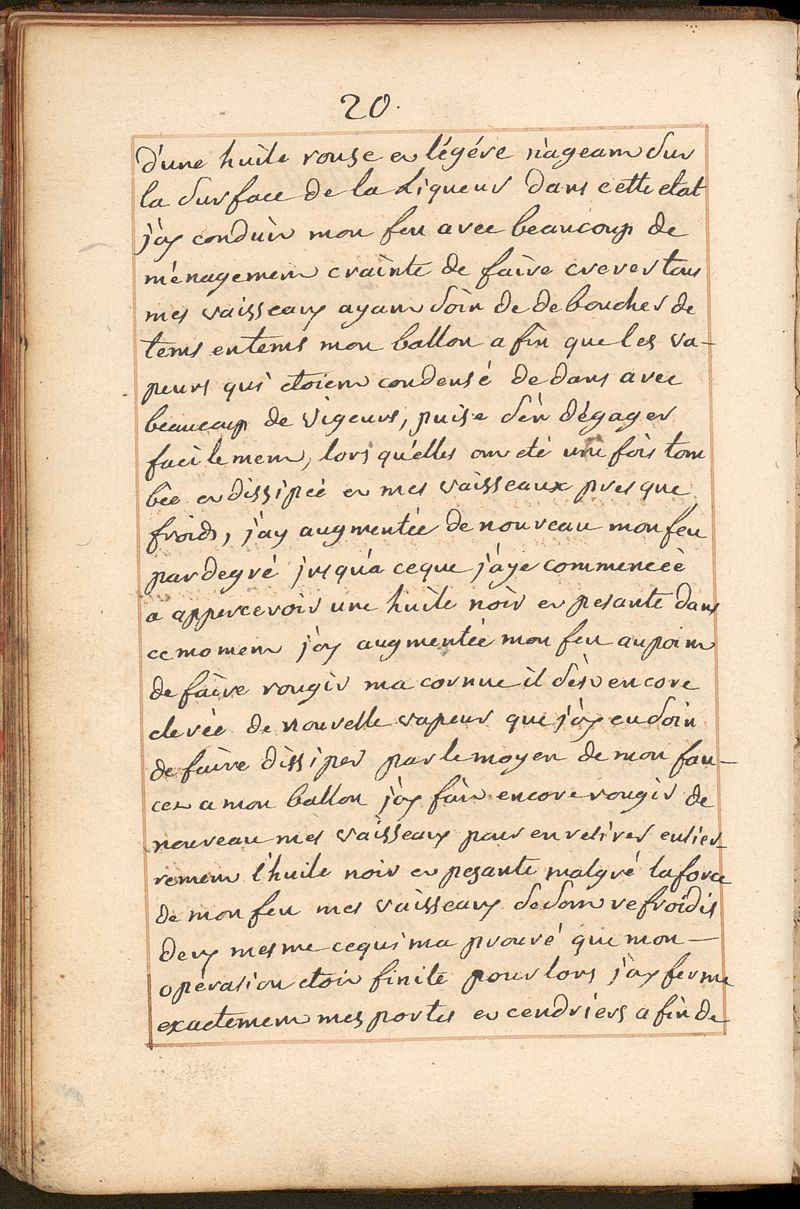 20.
d'une huile rouse et légére nageant sur
la surface de la Liqueur dans cette etat
j'ay conduit mon feu avec beaucoup de
ménagement crainte de faire crever tous
mes vaisseaux ayant soin de deboucher de
tems en tems mon ballon afin que les va-
peurs qui etoient condensé dedans avec
beaucoup de vigeurs, puise s'en dégager
facilement, lors qu'elles ont eté une fois tom
bée et dissipeé et mes vaisseaux presque
froids, j'ay augmentée de nouveau mon feu
par degré jusqu'a ceque j'aye commenceè
a appercevoir une huile noir et pesante dans
ce moment j'ay augmentée mon feu au point
de faire rougir ma cornue il s'est encore
elevée de nouvelle vapeur que j'ay eu soin
de faire dissiper par le moyen de mon fau-
cet a mon ballon j'ay fait encore rougir de
nouveau mes vaisseaux pour en retirer entier-
rement l'huile noir et pesante malgré la force
de mon feu mes vaisseaux se sont refroidis
deux mesme cequi ma prouvé que mon
opérasion etoit finite pour lors j'ay ferme
exactement mes portes et cendriers afin de